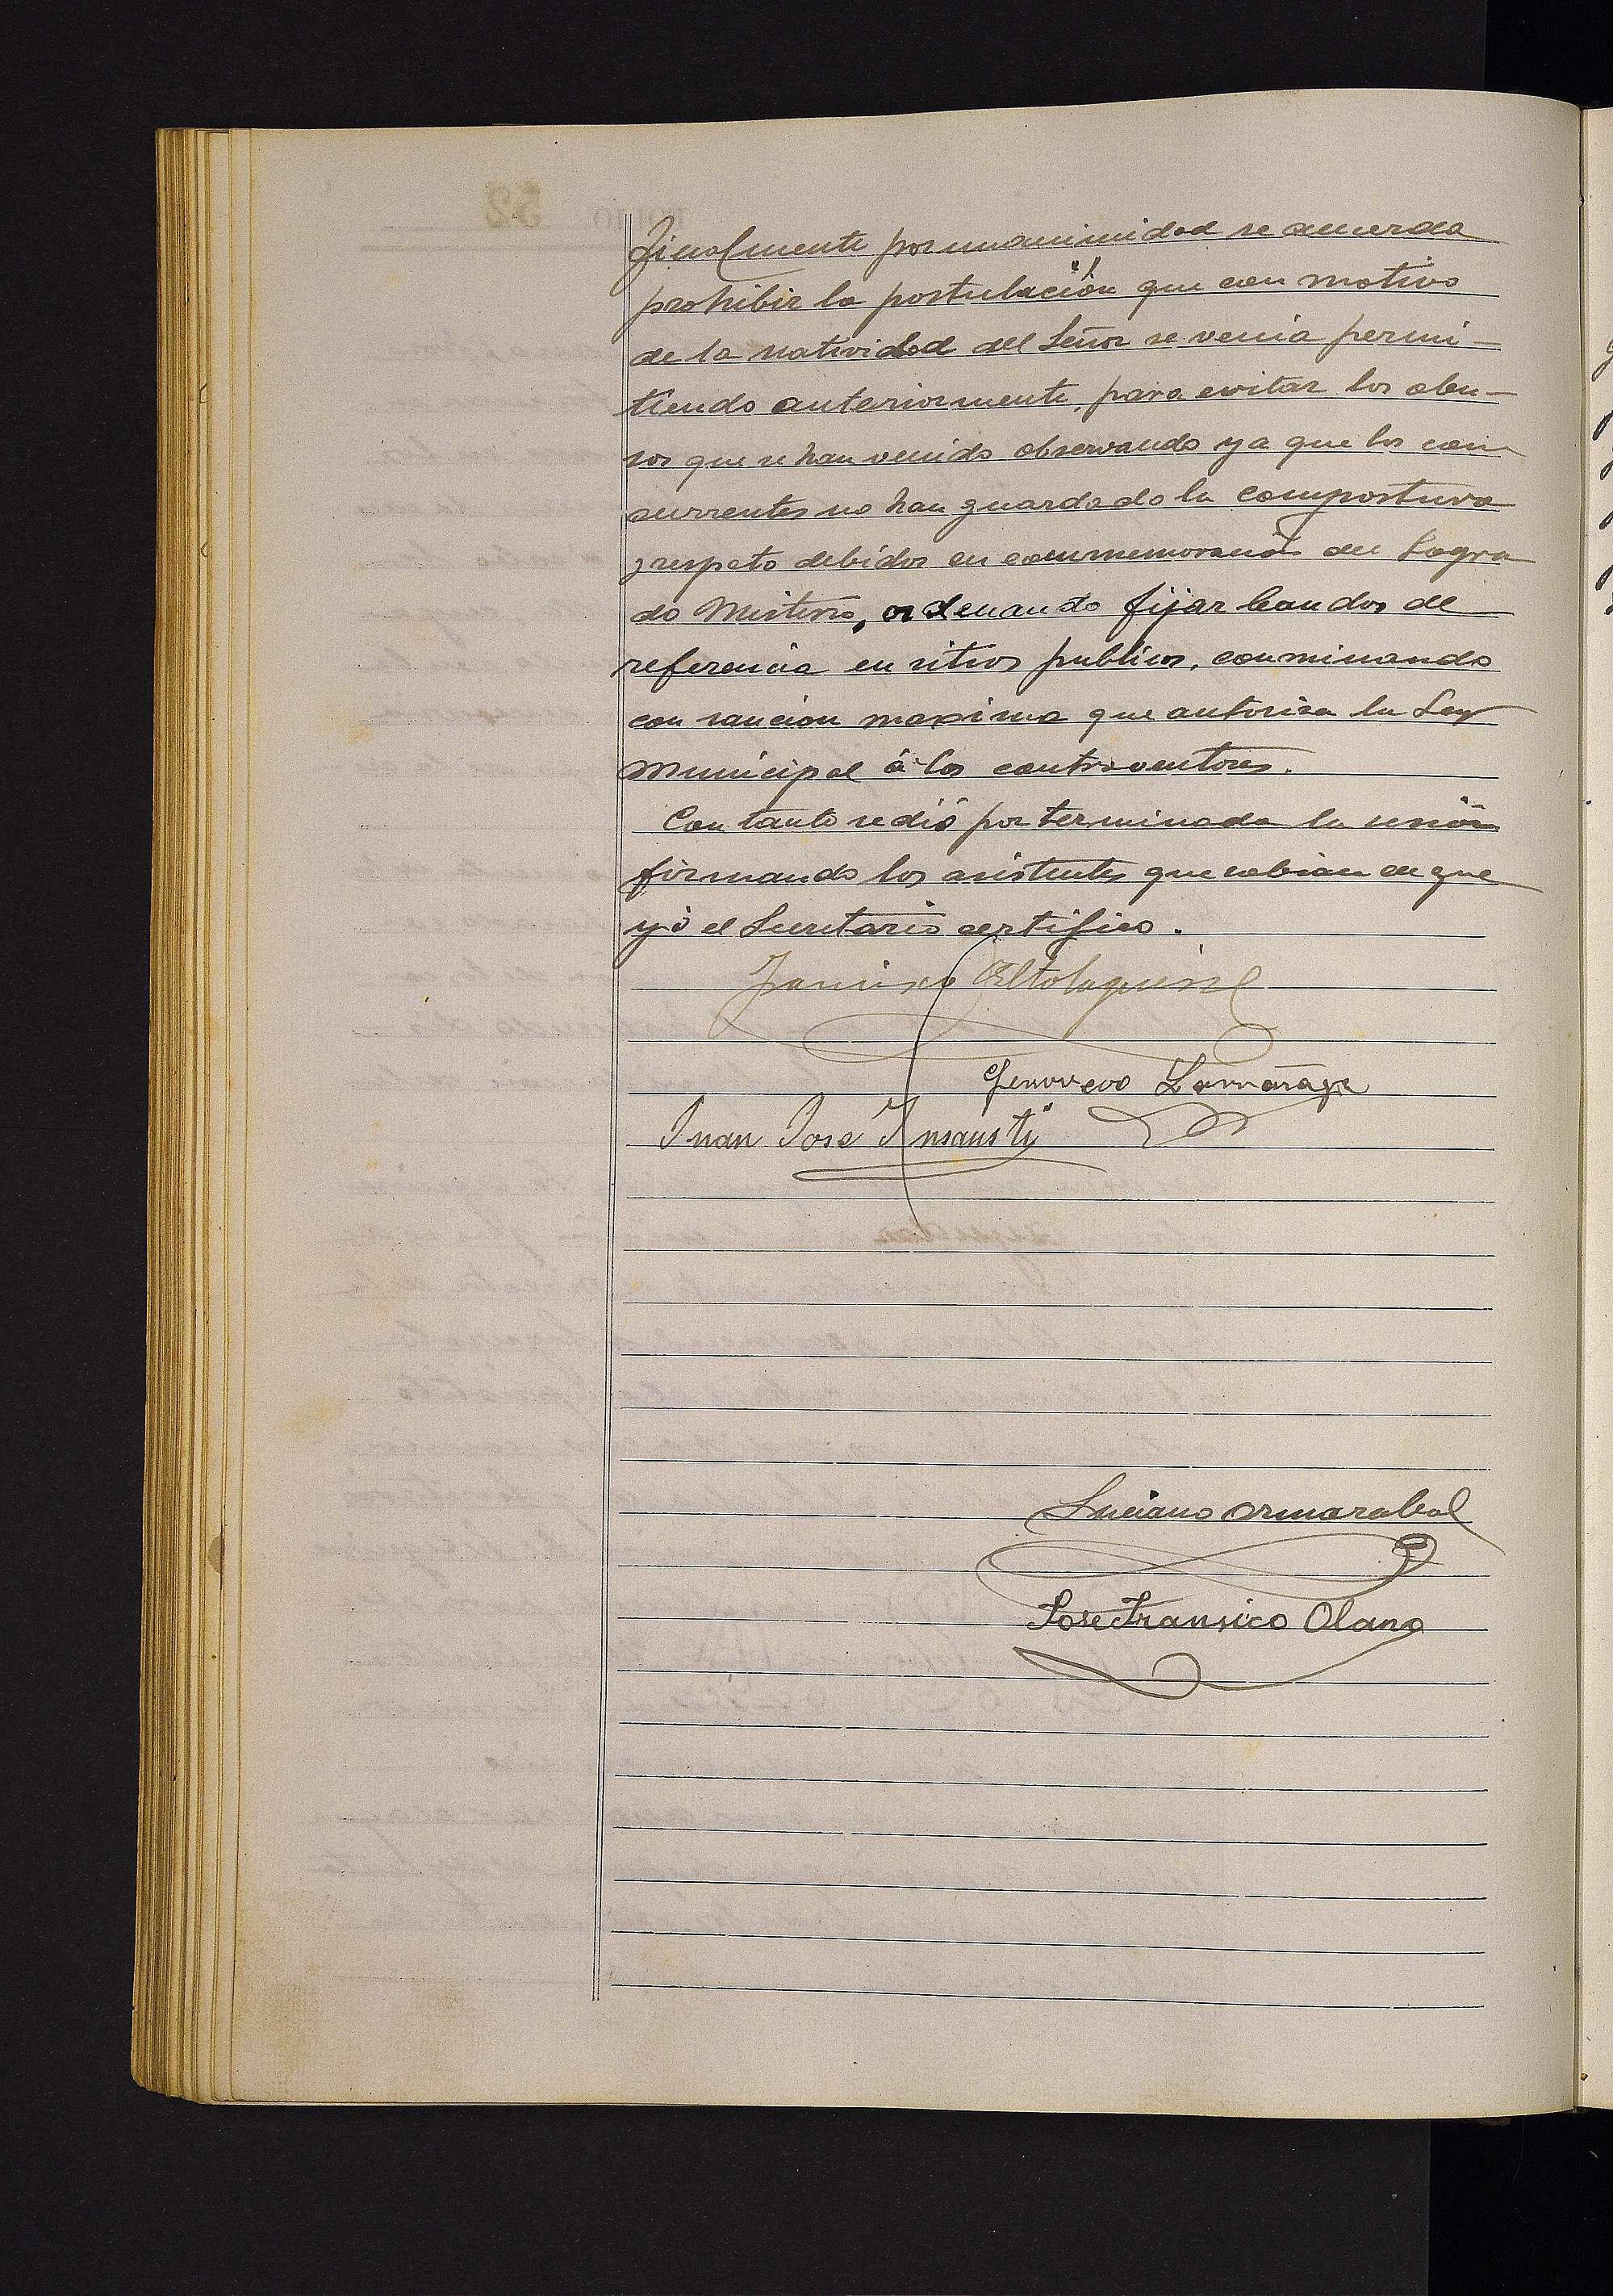 Finalmente por unanimidad se acuerda
prohibir la postulación que con motivo
de la natividad del Señor se venia permi-
tiendo anteriormente, para evitar los abu-
sos que se han venido observando ya que los con-
currentes no han guardado la compostura
y respeto debidos en conmemoración del Sagra
do Misterio, ordenando fijar bandos de
referencia en sitios publicos, conminando
con sancion maxima que autorisa la Ley
Municipal á los contraventores.
Con tanto se dió por terminada la sesión
firmando los asistentes que sabian de que
yó el Secretario certifico.
Francisco Altolaguirre
Genoveva Larrañaga
Juan Jose Insausti
Luciano Ormazabal
Jose Fransico Olano